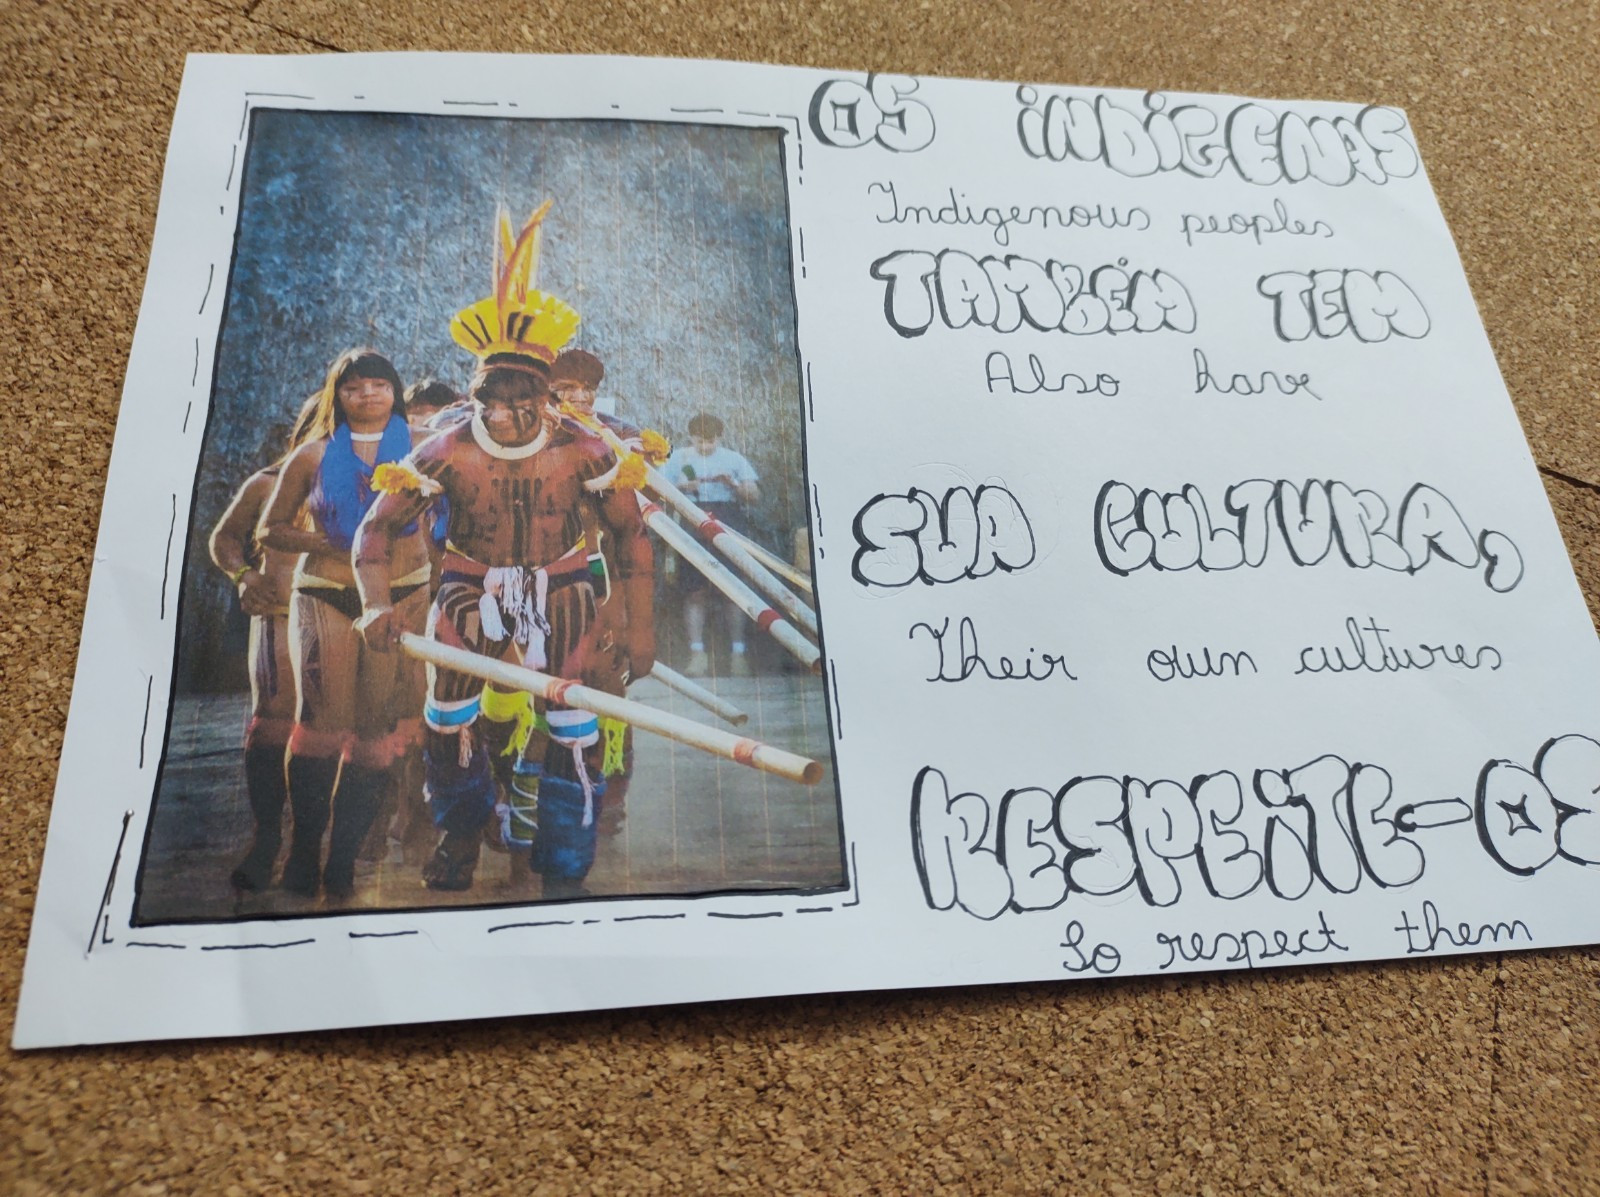 OS INDIGENAS
Indigenous peoples
TAMBÉM TEM
Also have
SUA CULTURA,
Their own cultures
RESPEITE-OS
So respect them